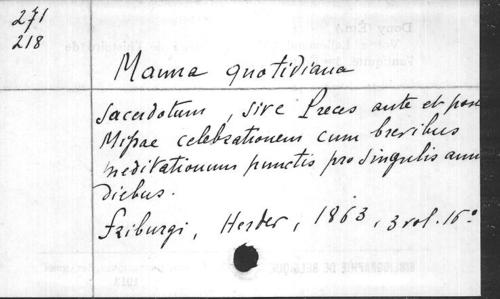 271
218
Manna quotidiana
sacerdotum, sive Preces ante et post
Missae celebrationem cum brevibus
meditationum punctis pro singulis anni
diebus.
Friburgi, Herder, 1863, 3 vol. 16°
BIBLIOGRAPHIE DE BELGIQUE
1913